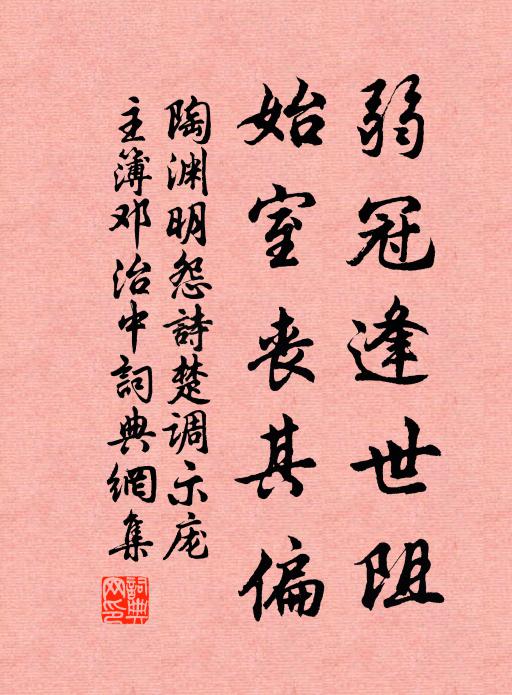 弱冠逢世阻
始室丧其偏
陶渊明怨詩楚调示庞
主簿邓治中詞典網集